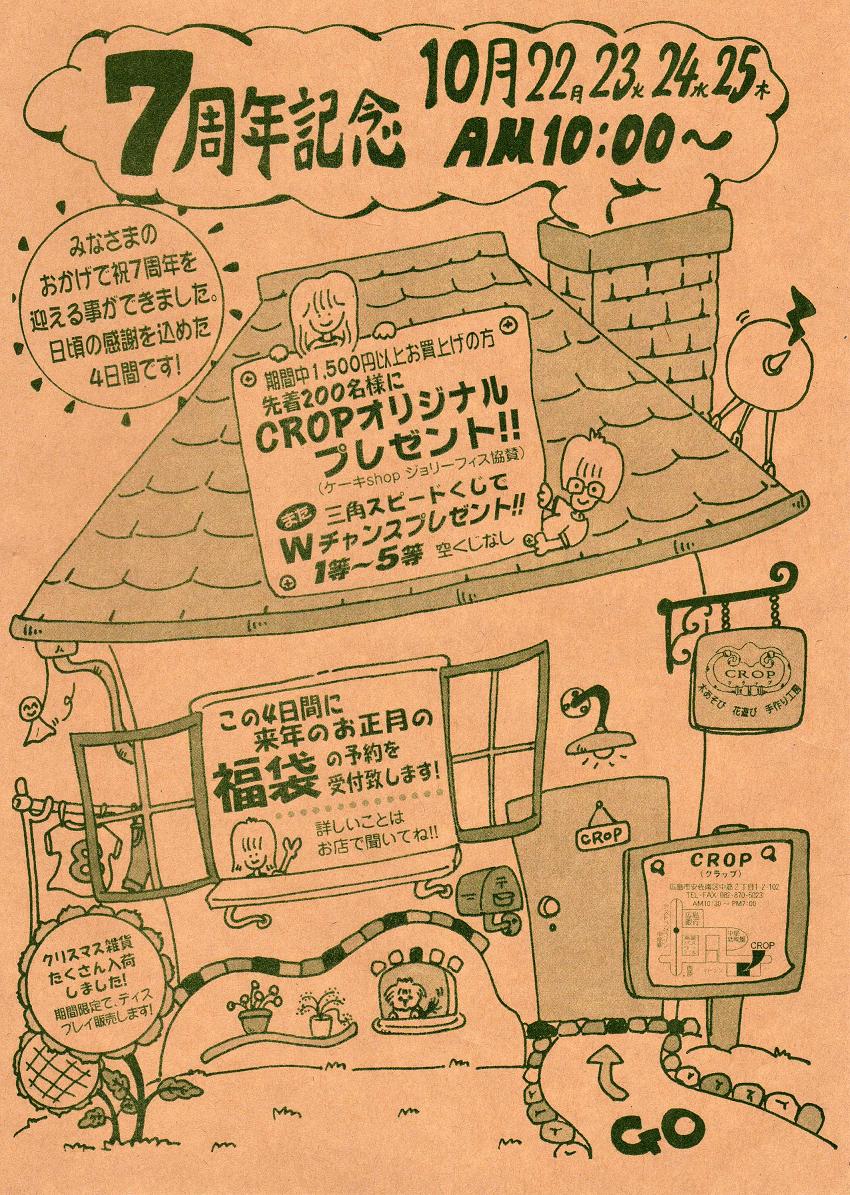 7周年記念
10月22月 23火 24水 25木
AM10:00〜
みなさまの
おかげで祝7周年を
迎える事ができました。
日頃の感謝を込めた
4日間です!
期間中1,500円以上お買上げの方
先着200名様に
CROPオリジナル
プレゼント!!
(ケーキshop ジョリーフィス協賛)
また 三角スピードくじで
Wチャンスプレゼント!!
1等〜5等 空くじなし
CROP
クラップ
木あそび 花遊び 手作り工房
この4日間に
来年のお正月の
福袋の予約を
受付致します!
詳しいことは
お店で聞いてね!!
8
CROP
CROP
(クラップ)
広島市安佐南区中筋2丁目1-2-102
TEL・FAX 082-870-5023
AM10:30→PM7:00
広島
銀行
CROP
クリスマス雑貨
たくさん入荷
しました!
期間限定で、ディス
プレイ販売します!
GO